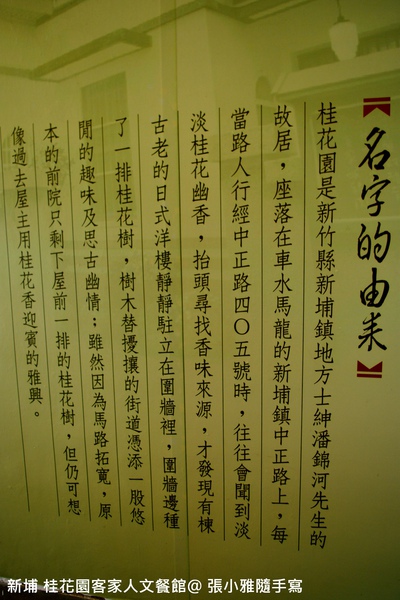 名字的由來
桂花園是新竹縣新埔鎮地方士紳潘錦河先生的
故居，座落在車水馬龍的新埔鎮中正路上，每
當路人行經中正路四〇五號時，往往會聞到淡
淡桂花幽香，抬頭尋找香味來源，才發現有棟
古老的日式洋樓靜靜駐立在圍牆裡，圍牆邊種
了一排桂花樹，樹木替擾攘的街道憑添一股悠
閒的趣味及思古幽情；雖然因為馬路拓寬，原
本的前院只剩下屋前一排的桂花樹，但仍可想
像過去屋主用桂花香迎賓的雅興。
新埔 桂花園客家人文餐館@ 張小雅隨手寫